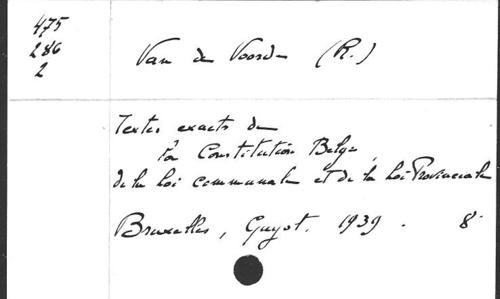 475
286
2
Van de Voorde (R.)
Textes exacts de
la Constitution Belge,
de la loi communale et de la loi Provinciale
Bruxelles, Guyot. 1939. 8°